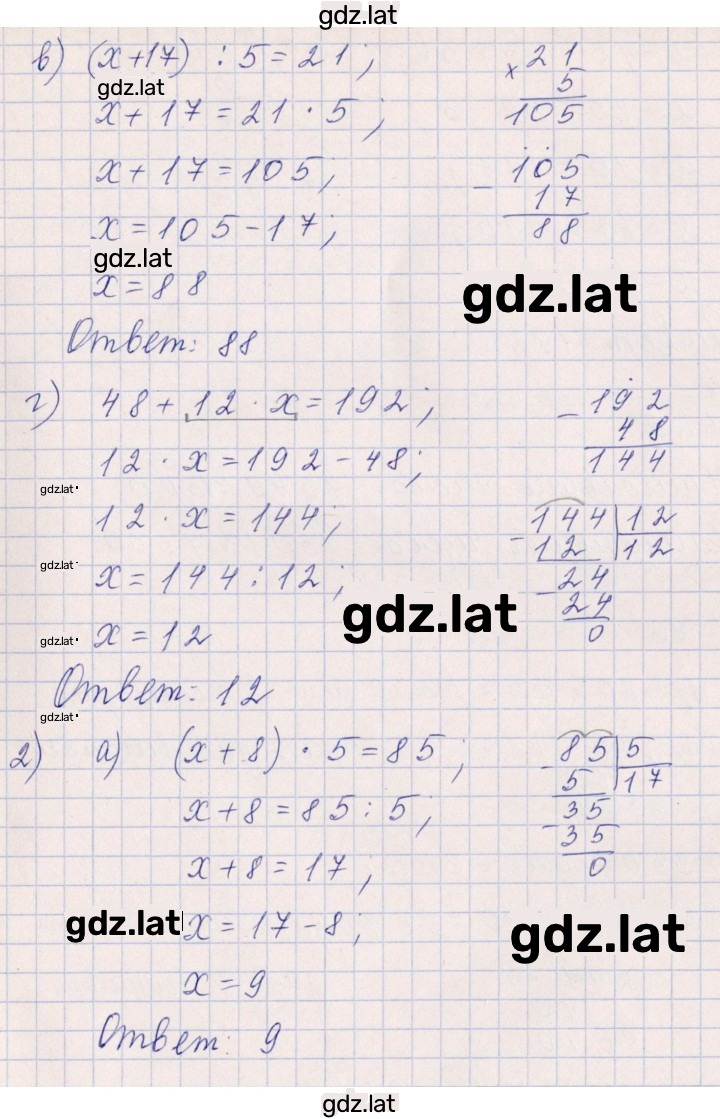 gdz.lat
в) (x+17) : 5 = 21;
gdz.lat
x + 17 = 21 · 5;
x + 17 = 105;
x = 105 - 17;
gdz.lat
x = 88
Ответ: 88
× 21
5
105
- 105
17
88
gdz.lat
г) 48 + 12 · x = 192;
12 · x = 192 - 48;
gdz.lat
12 · x = 144;
gdz.lat
x = 144 : 12;
gdz.lat
x = 12
Ответ: 12
gdz.lat
- 192
48
144
- 144 | 12
12 | 12
- 24
24
0
gdz.lat
2) а) (x + 8) · 5 = 85;
x + 8 = 85 : 5;
x + 8 = 17;
gdz.lat
x = 17 - 8;
x = 9
Ответ: 9
- 85 | 5
5 | 17
- 35
35
0
gdz.lat
gdz.lat